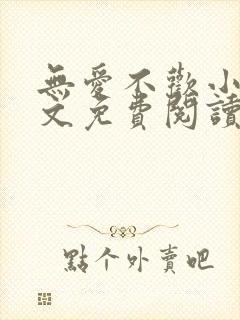 無愛不歡小
文免費閱讀
點个外賣吧